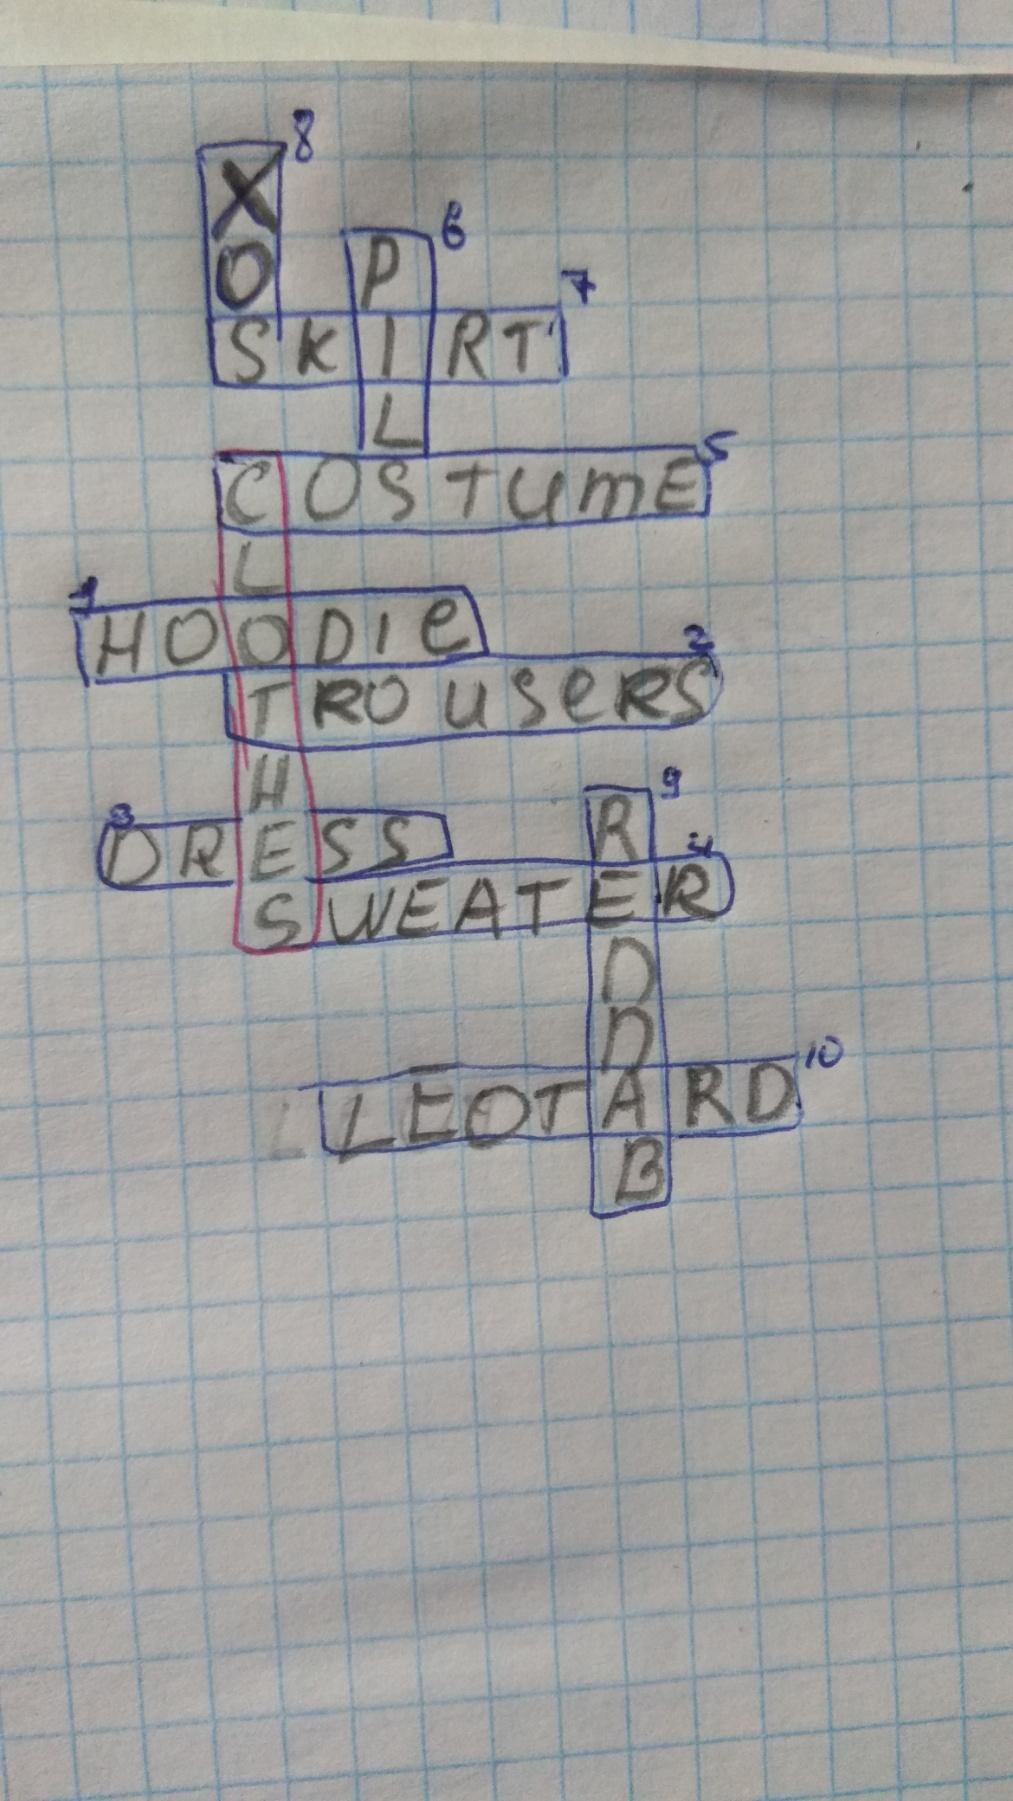 8
X
6
O P
7
SKIRT
L
5
COSTUME
L
1
HOODIE
2
TROUSERS
H 9
3
R
DRESS
4
SWEATER
D
D
10
LEOTARD
B